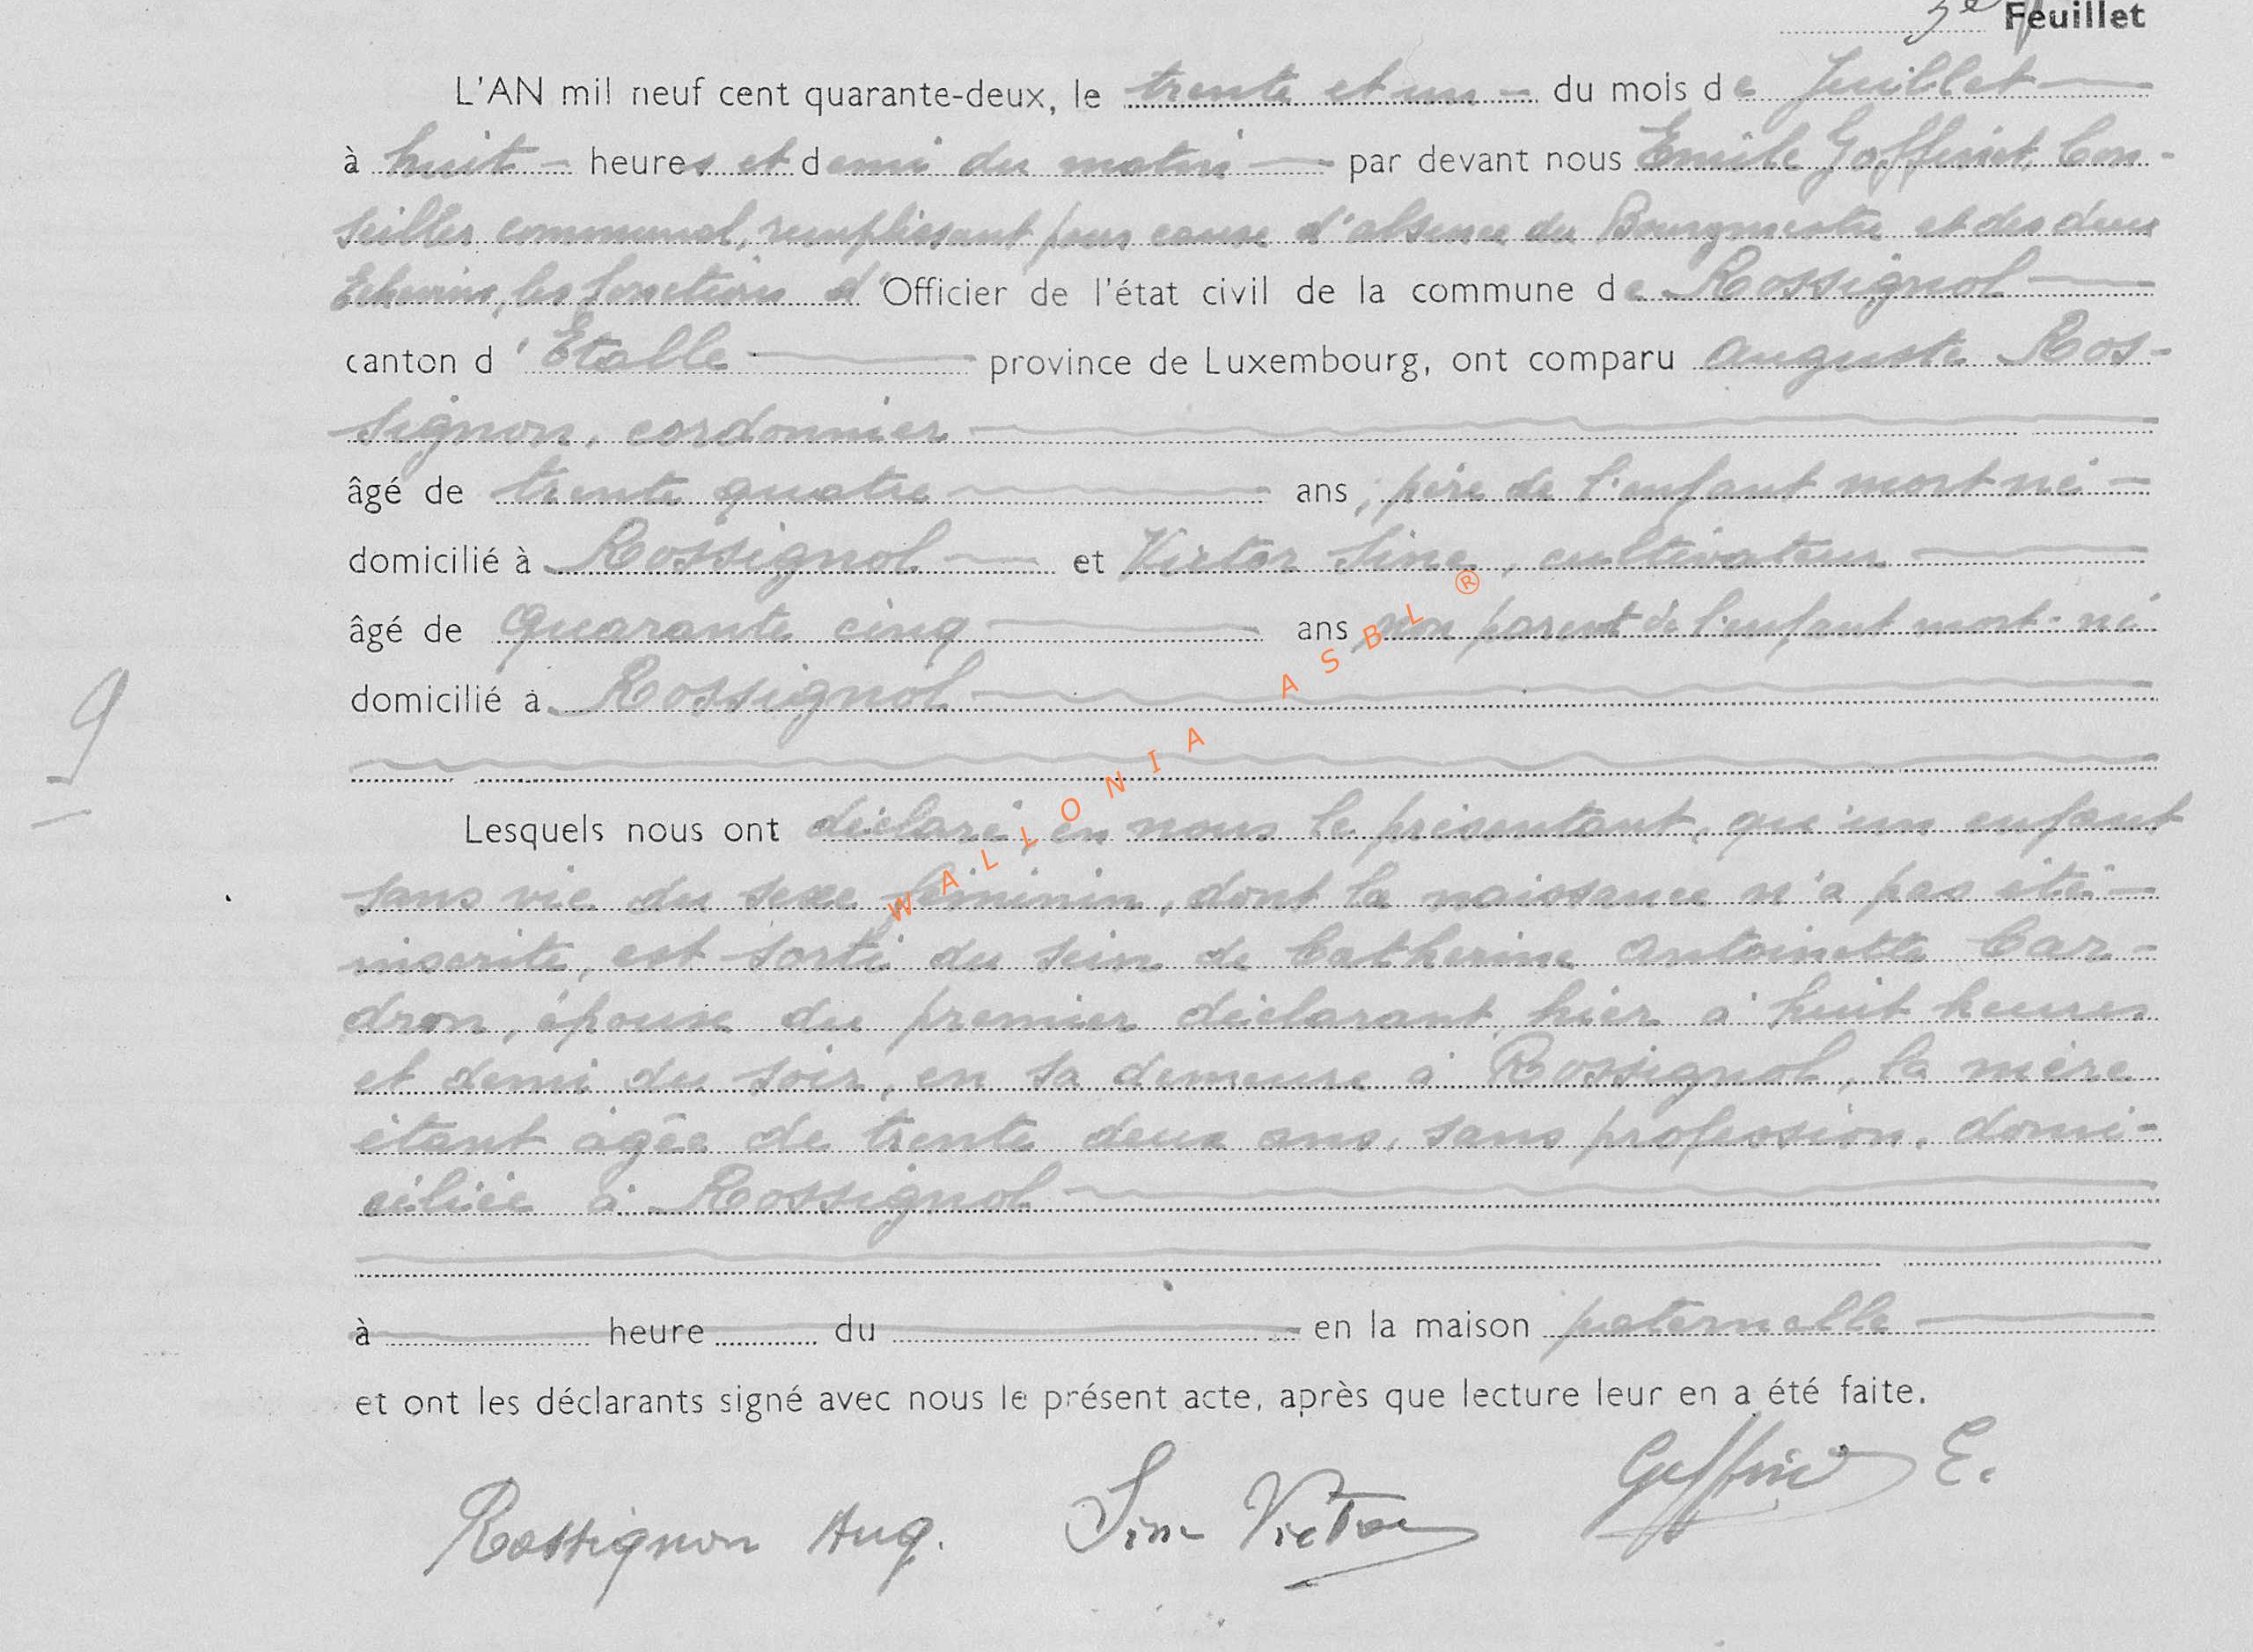 3e Feuillet
L'AN mil neuf cent quarante-deux, le trente et un - du mois de Juillet
à huit - heures et demi du matin par devant nous Emile Goffinet, Con-
seiller communal, remplissant pour cause d'absence du Bourgmestre et des deux
Echevins, les fonctions d'Officier de l'état civil de la commune de Rossignol
canton d'Etalle province de Luxembourg, ont comparu Auguste Ros-
signon, cordonnier
âgé de trente quatre ans, père de l'enfant mort né -
domicilié à Rossignol et Victor Sine, cultivateur
âgé de quarante cinq ans, non parent de l'enfant mort-né
domicilié à Rossignol
9
Lesquels nous ont déclaré, en nous le présentant, qu'un enfant
sans vie du sexe féminin, dont la naissance n'a pas été -
inscrite, est sorti du sein de Catherine Antoinette Car-
dron, épouse du premier déclarant, hier à huit heures
et demi du soir, en sa demeure à Rossignol, la mère
étant âgée de trente deux ans, sans profession, domi-
ciliée à Rossignol
à heure du en la maison paternelle
et ont les déclarants signé avec nous le présent acte, après que lecture leur en a été faite.
Rossignon Aug. Sine Victor Goffinet E.
WALLONIA ASBL ®